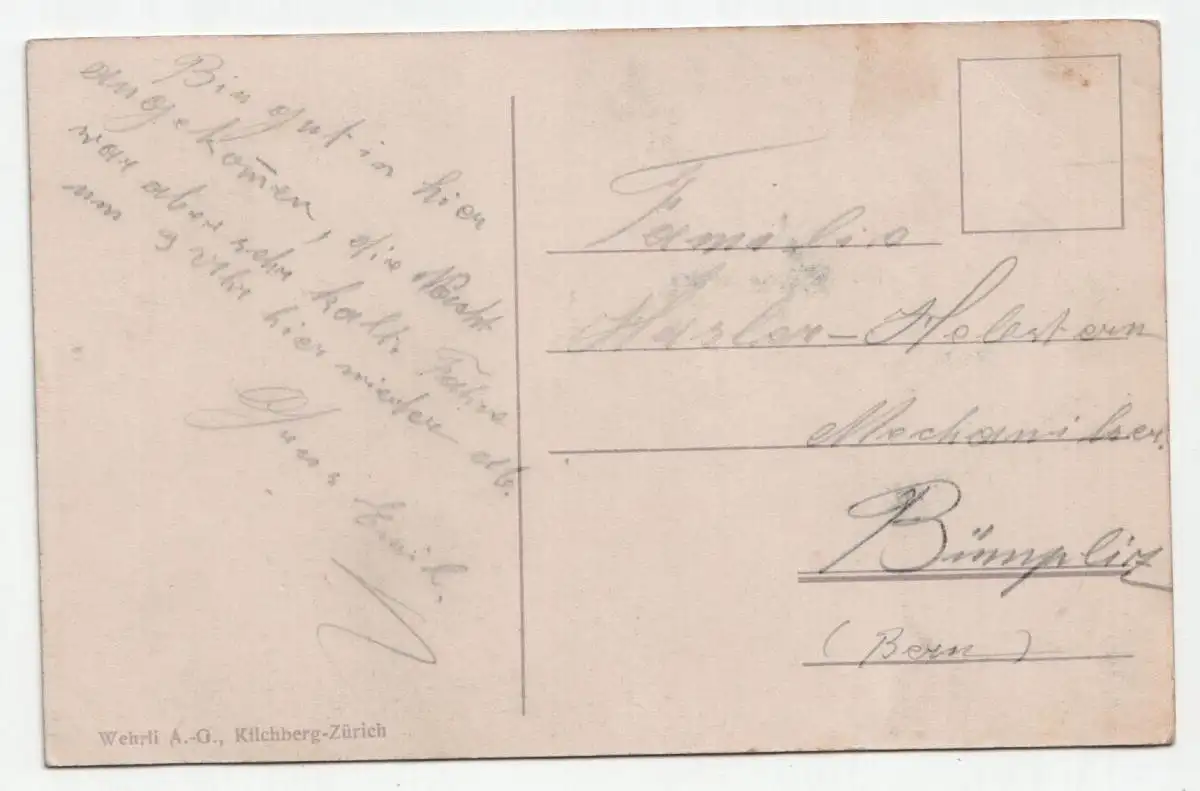 Bin gut in hier
angekom̄en, die Nacht
war aber sehr kalt. Fahre
um 9 Uhr hier wieder ab.
Gruss Emil.
Familie
Hasler-Hebstern
Mechaniker.
Bümpliz
(Bern)
Wehrli A.-G., Kilchberg-Zürich